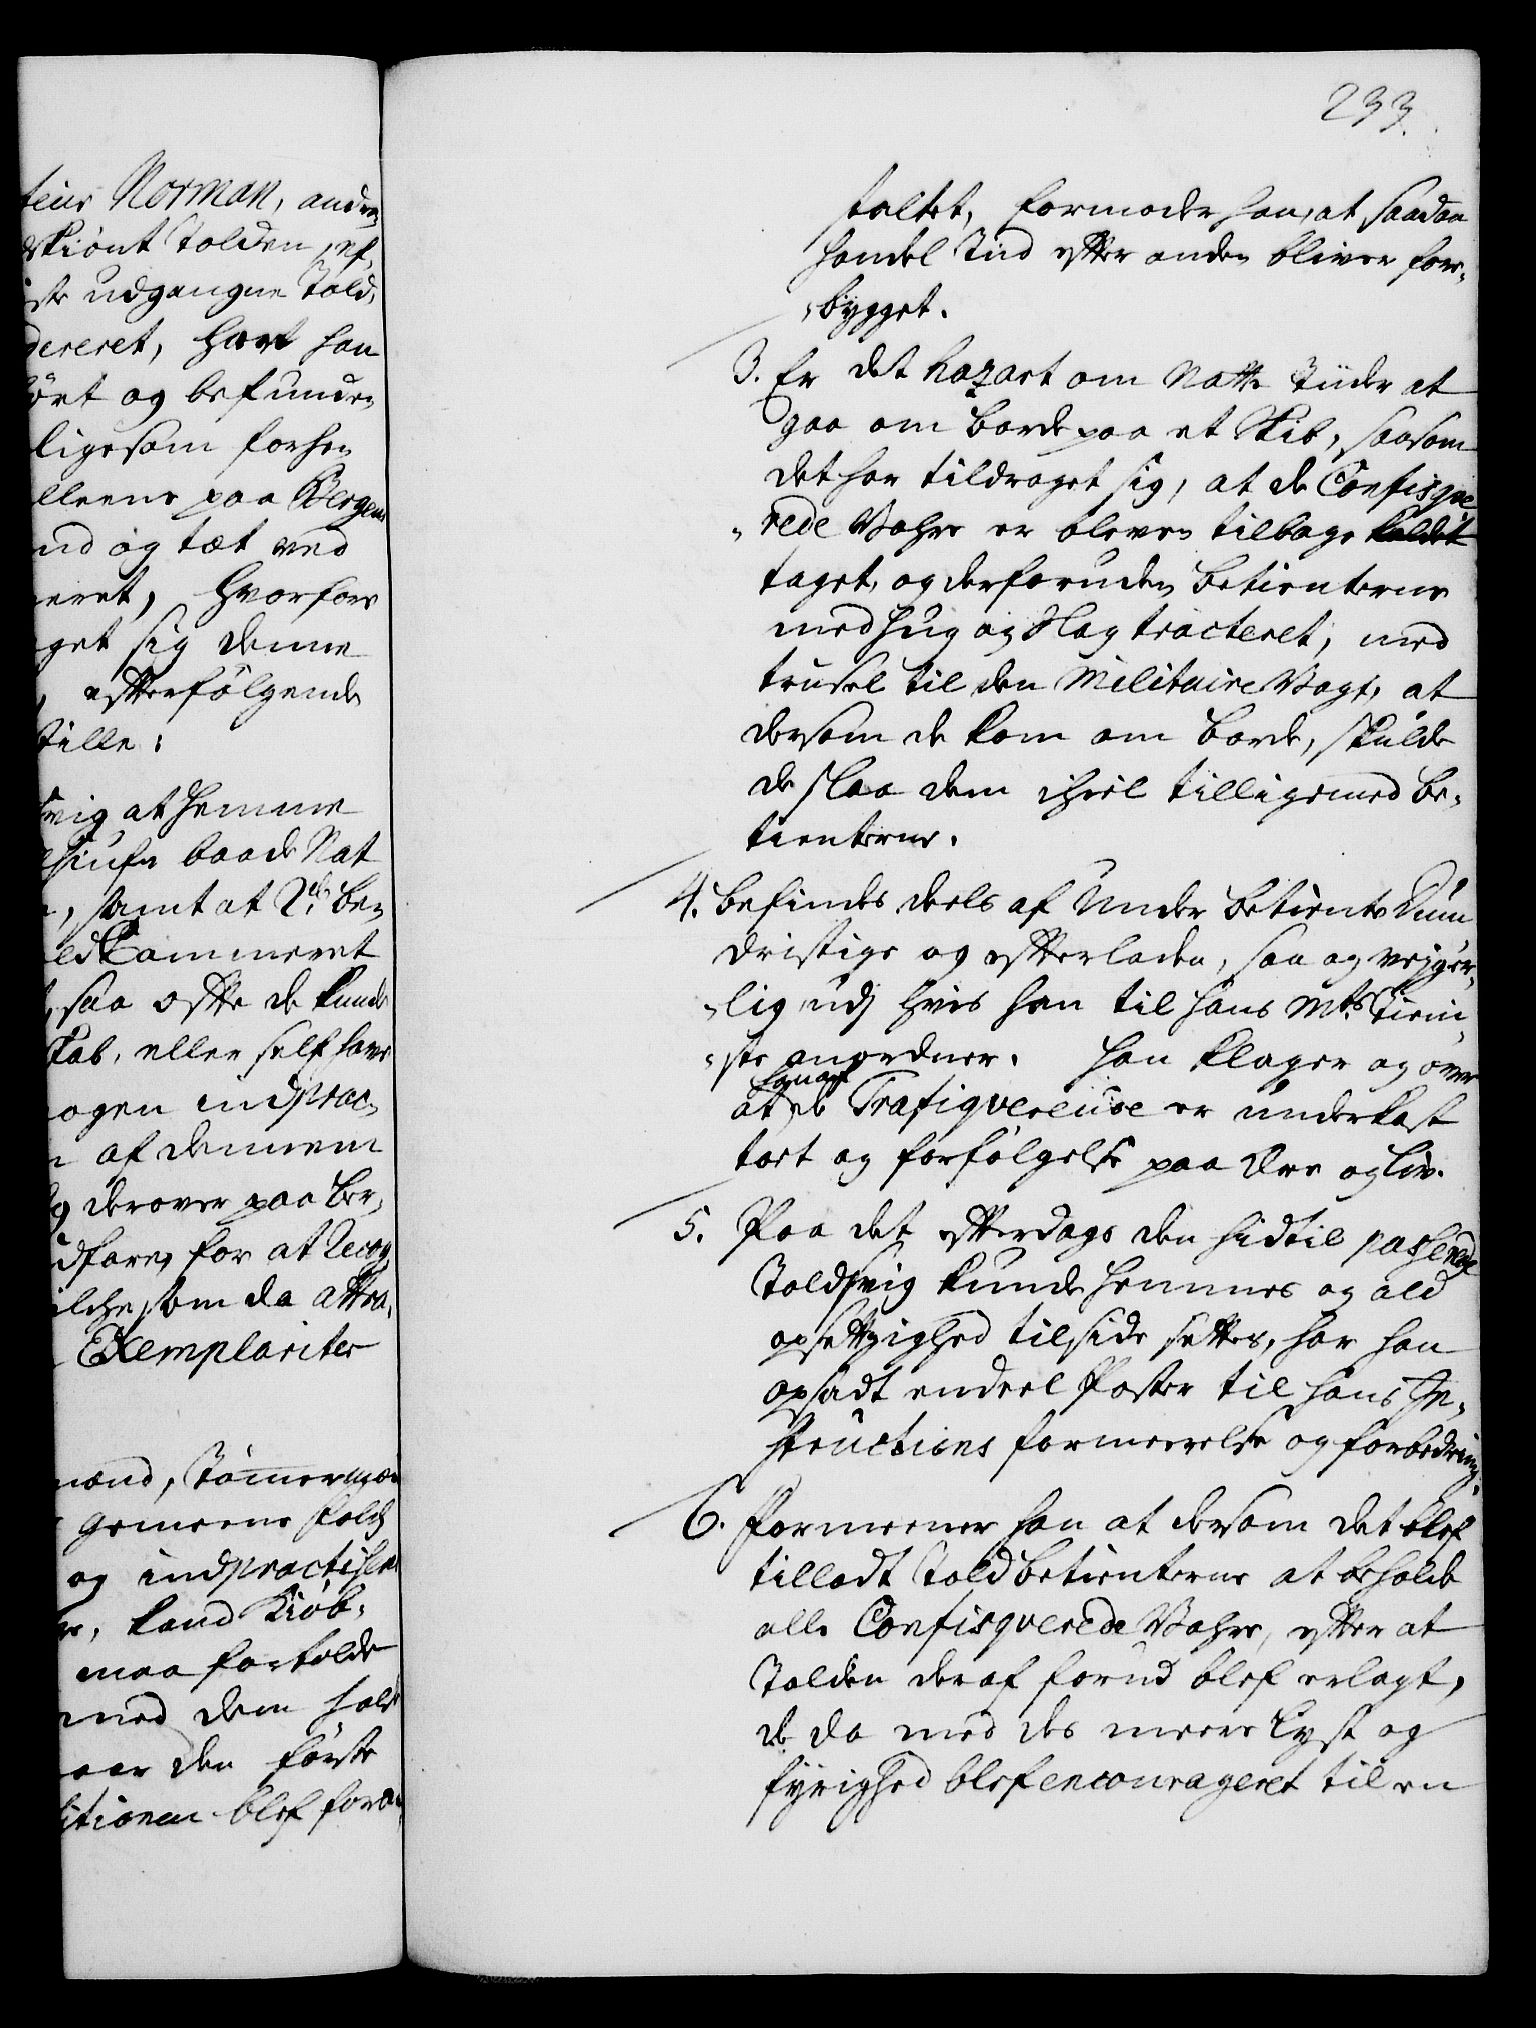 233.
teur Norman, andra-
dskiönt Tolden, ef,
ste udgangne Told,
dereret, hart han
ört og befunden
ligesom forhen
lleene paa Bergens
nd og tæt ved
eret, hvorfore
get sig denne
efterfölgende
tille:
svig at hemme
baade Nat
, samt at 2de be,
ed Cammeret
, saa ofte de kunde
skab, eller self have
ogen indprac,
af dennem
og derover paa Ber,
udfare, for at Recog
ilche som da attra,
Exemplariter
mand, Tömmermæn
gemeene folch
og indpractisere
kand Kiöb,
maa fortolde
med dem hold
aar den förste
itionen blef foran
staltet, formoder han, at saadan
handel Tiid efter anden bliver fore,
„bygget.
3. Er det hazart om Natte Tiider at
gaa om borde paa et Skib, saasom
det har tildraget sig, at de Confisqve
„rede Vahre er bleven tilbage kaldet
taget, og derforuden betienterne
med hug og Slag tracteret, med
trusel til den Militaire Vagt, at
dersom de kom om borde, skulde
de slaa dem ihiel tilligemed be,
tienterne.
4. befindes deels af Under betiente Uun
dristige og efterladen, saa og vejger,
„lig udj hvis han til hans Mts. Tieni,
„ste anordner. Han klager og over
at de Trafiqvereuse er underkast
tort og forfölgelse paa Ære og Liv.
5. Paa det efterdags den hidtil passerede
Toldsvig kunde hemmes og ald
opsetzighed tilside settes, har han
opsadt endeel Poster til hans In,
structions formeerelse og forbedring.
6. Formeener han at dersom det blef
tilladt Toldbetienterne at beholde
alle Confisqverede Vahre, efter at
Tolden deraf forud blef erlagt,
de da med des meere Lyst og
fyrighed blef encourageret til en